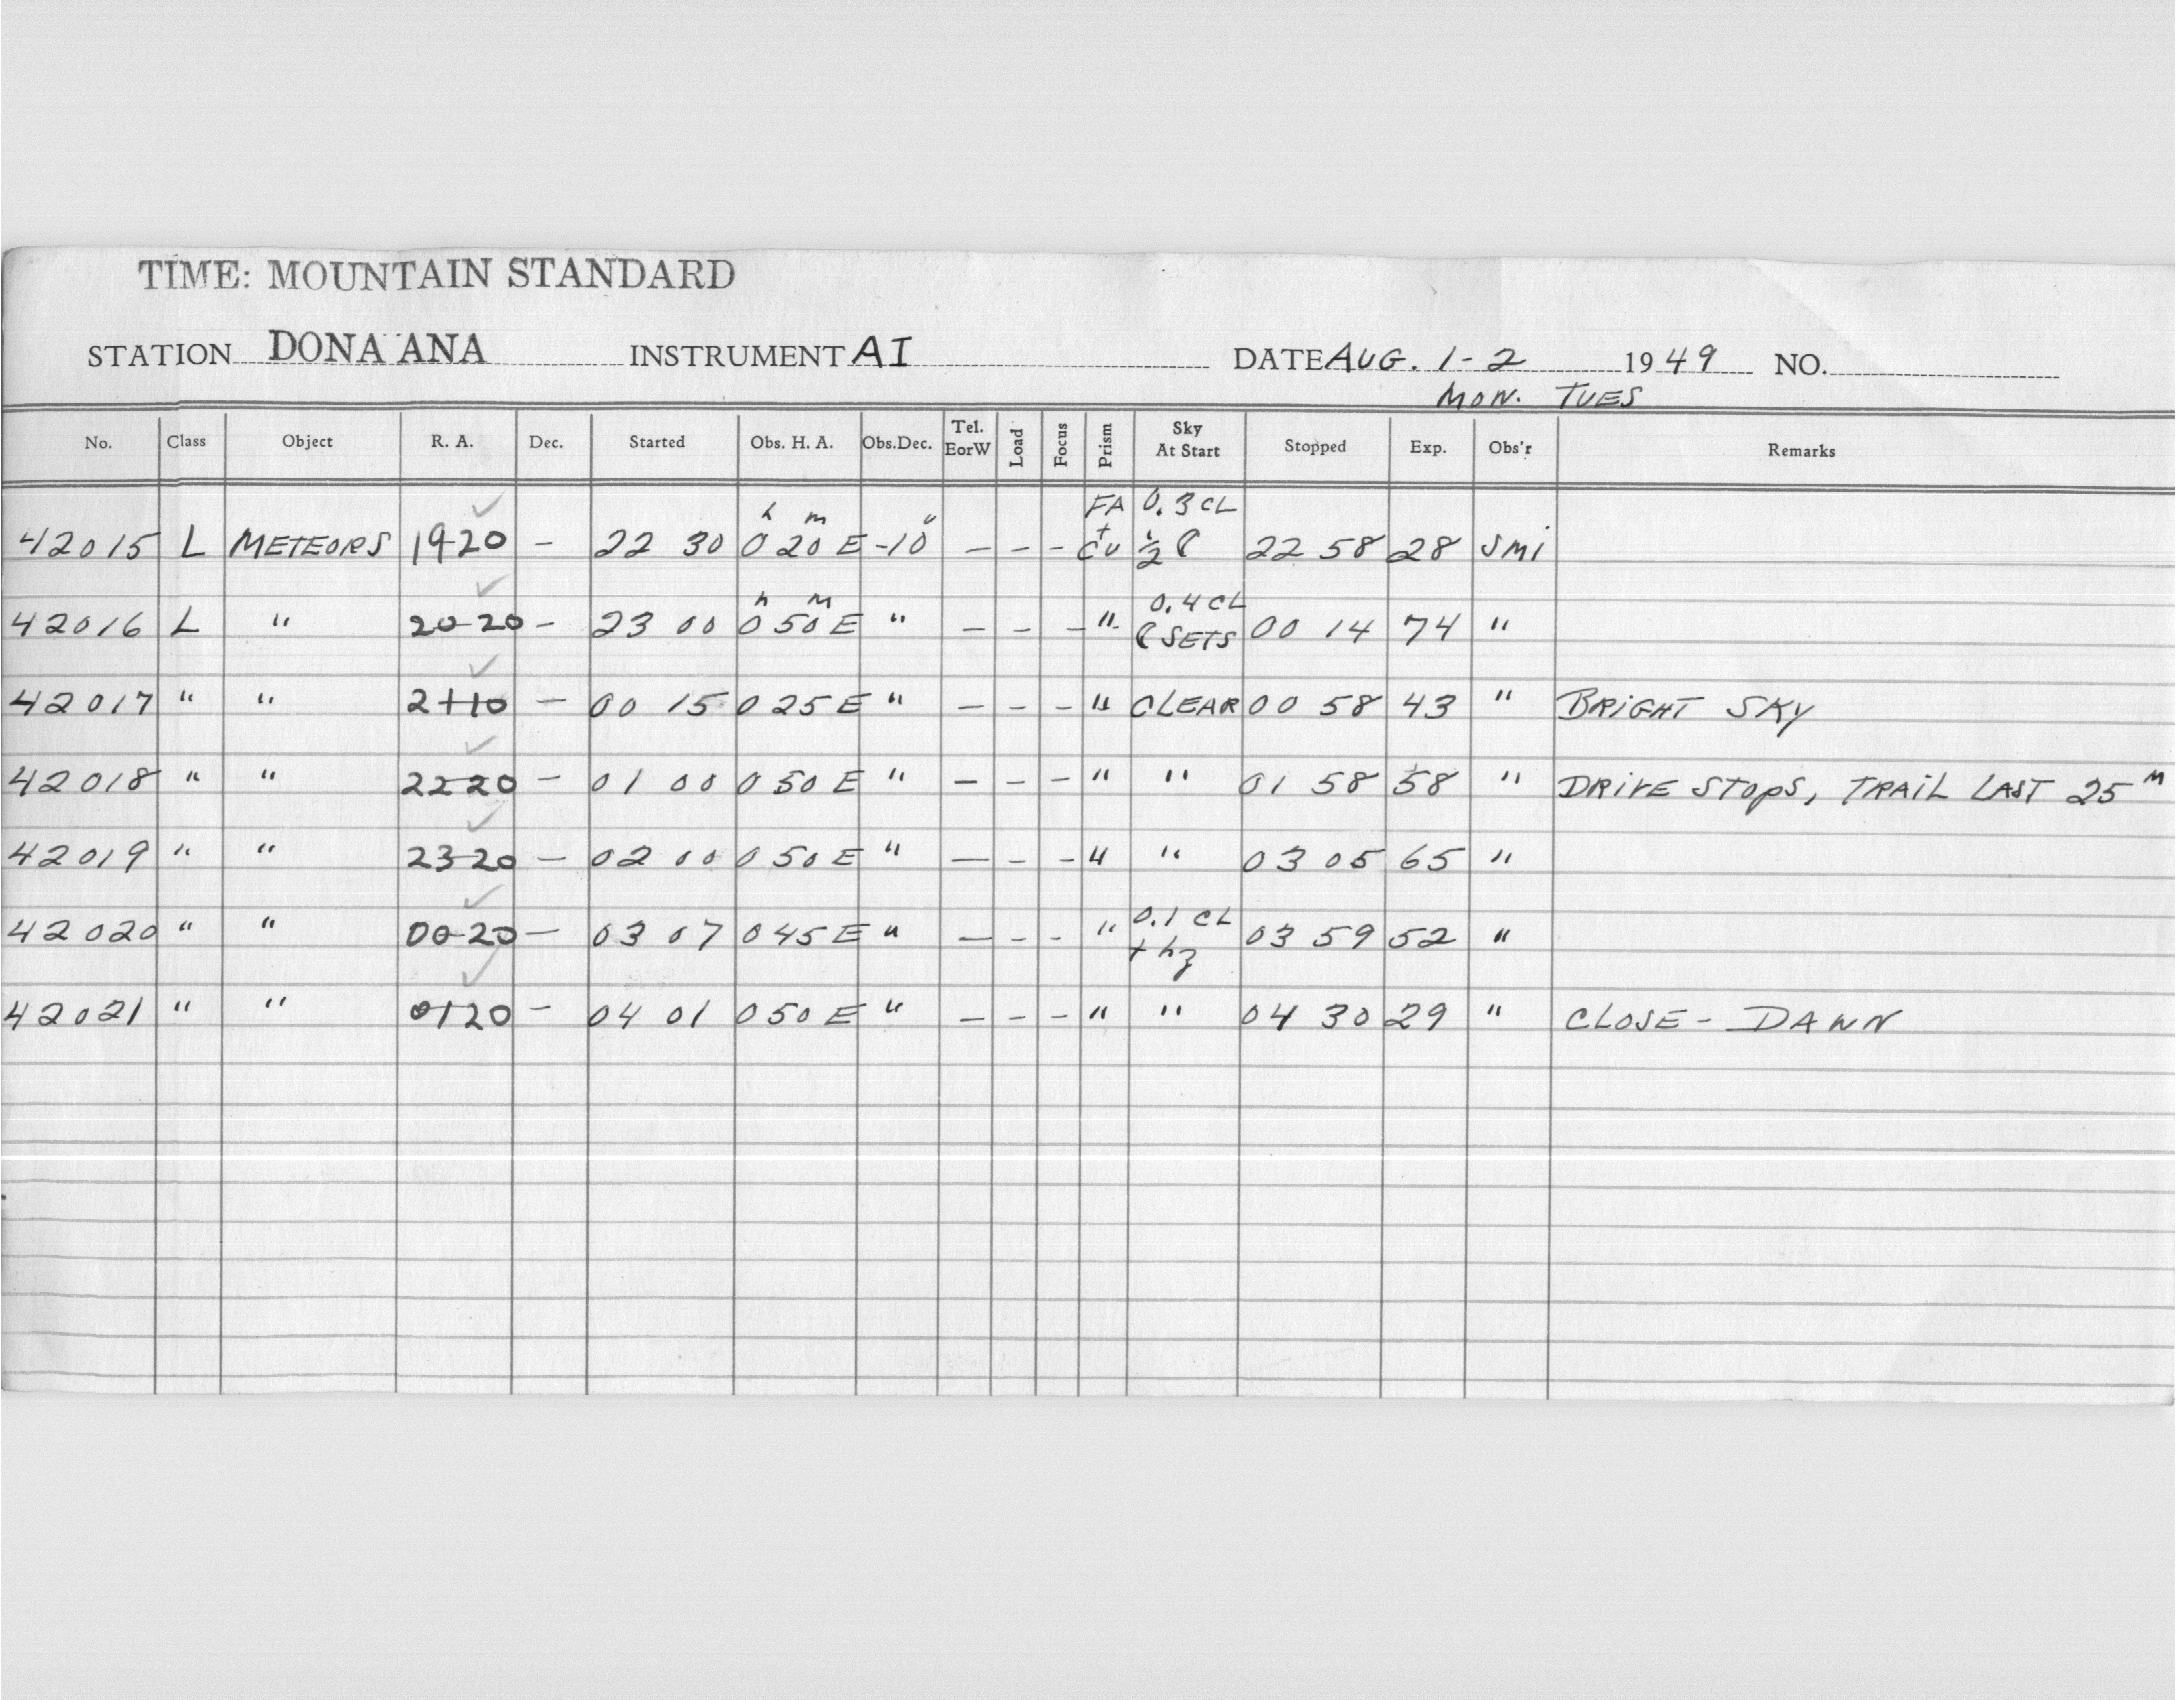 TIME: MOUNTAIN STANDARD
STATION DONA ANA INSTRUMENT AI DATE AUG. 1-2 1949 NO.
MON. TUES
No. Class Object R. A. Dec. Started Obs. H. A. Obs.Dec. Tel. EorW Load Focus Prism Sky At Start Stopped Exp. Obs'r Remarks
h m FA 0.3 CL
42015 L METEORS 19-20 - 22 30 0 20 E -10 - - - + CU ½ 22 58 28 SMi
h m 0.4 CL
42016 L " 20-20 - 23 00 0 50 E " - - - " SETS 00 14 74 "
42017 " " 21-10 - 00 15 0 25 E " - - - " CLEAR 00 58 43 " BRIGHT SKY
42018 " " 22-20 - 01 00 0 50 E " - - - " " 01 58 58 " DRIVE STOPS, TRAIL LAST 25 M
42019 " " 23-20 - 02 00 0 50 E " - - - " " 03 05 65 "
42020 " " 00-20 - 03 07 0 45 E " - - - " 0.1 CL 03 59 52 "
+ hz
42021 " " 0120 - 04 01 0 50 E " - - - " " 04 30 29 " CLOSE - DAWN